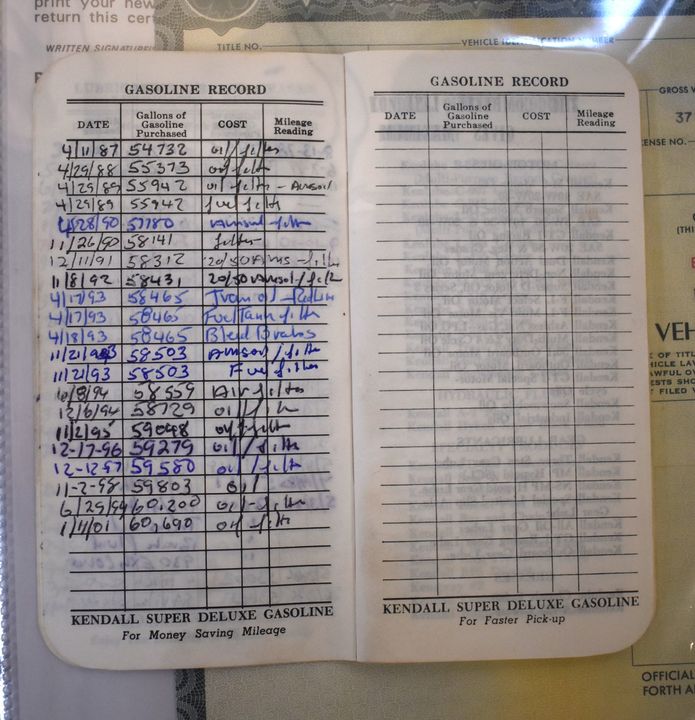 print your new
return this cert
WRITTEN SIGNATURE
TITLE NO.
VEHICLE IDENTIFICATION NUMBER
GASOLINE RECORD
DATE Gallons of Gasoline Purchased COST Mileage Reading
4/11/87 54732 oil/filter
4/29/88 55373 oil filter
4/29/89 55942 oil filter - Amsoil
4/29/89 55942 fuel filter
4/28/90 57780 Amsoil filter
11/26/90 58141 filter
12/11/91 58312 20/50 Ams-filter
11/8/92 58431 20/50 Amsol/filt
4/17/93 58465 Trans oil - Redline
4/17/93 58465 Fuel Tank filter
4/18/93 58465 Bleed Brakes
11/21/93 58503 Amsoil/filter
11/21/93 58503 Fuel filter
6/8/94 58559 Air filter
12/6/94 58729 oil
11/2/95 59098 oil filter
12-17-96 59279 oil/filter
12-12-97 59580 oil/filter
11-2-98 59803 oil
6/29/99 60,200 oil-filter
1/11/01 60,690 oil filter
KENDALL SUPER DELUXE GASOLINE
For Money Saving Mileage
GASOLINE RECORD
DATE Gallons of Gasoline Purchased COST Mileage Reading
KENDALL SUPER DELUXE GASOLINE
For Faster Pick-up
GROSS
37
ENSE NO.
(THI
VEH
OF TITL
HICLE LAW
AWFUL OV
ESTS SHO
FILED
OFFICIAL
FORTH A